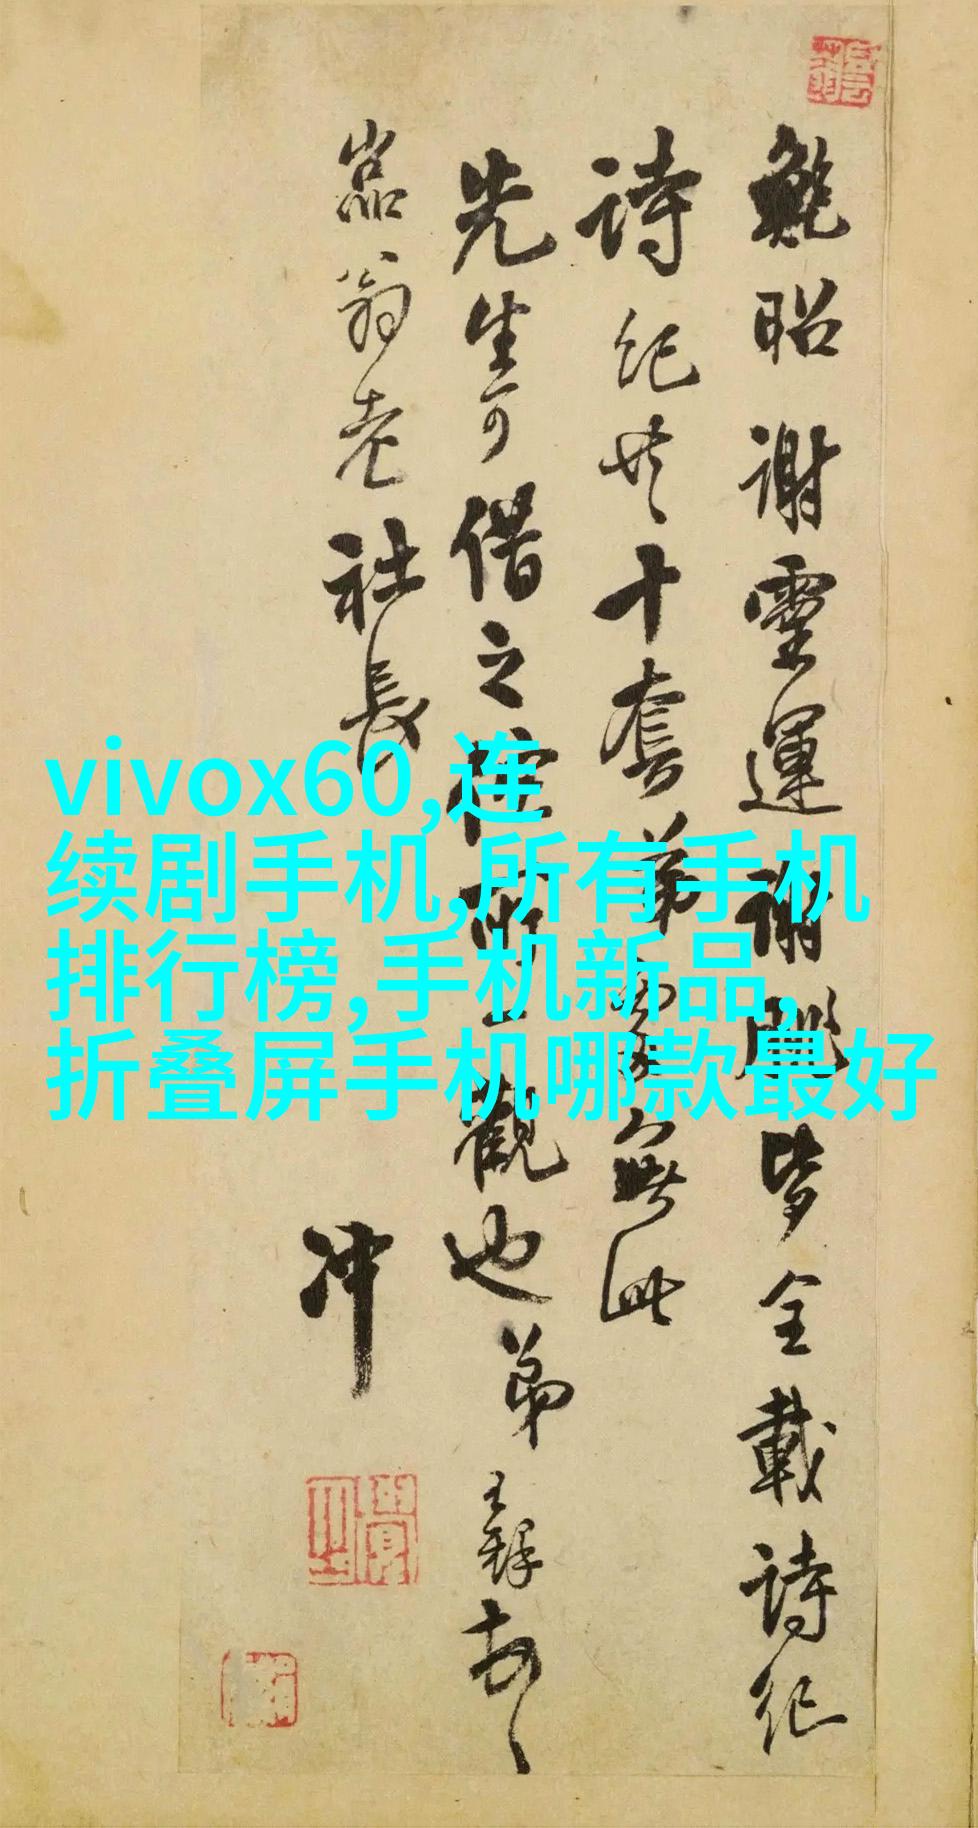 鮑昭謝靈運謝朓皆全載詩紀
詩紀共十套弟家無此
先生可借之觀也弟王鐸
嵓翁老社長
冲
vivox60,连
续剧手机,所有手机
排行榜,手机新品,
折叠屏手机哪款最好